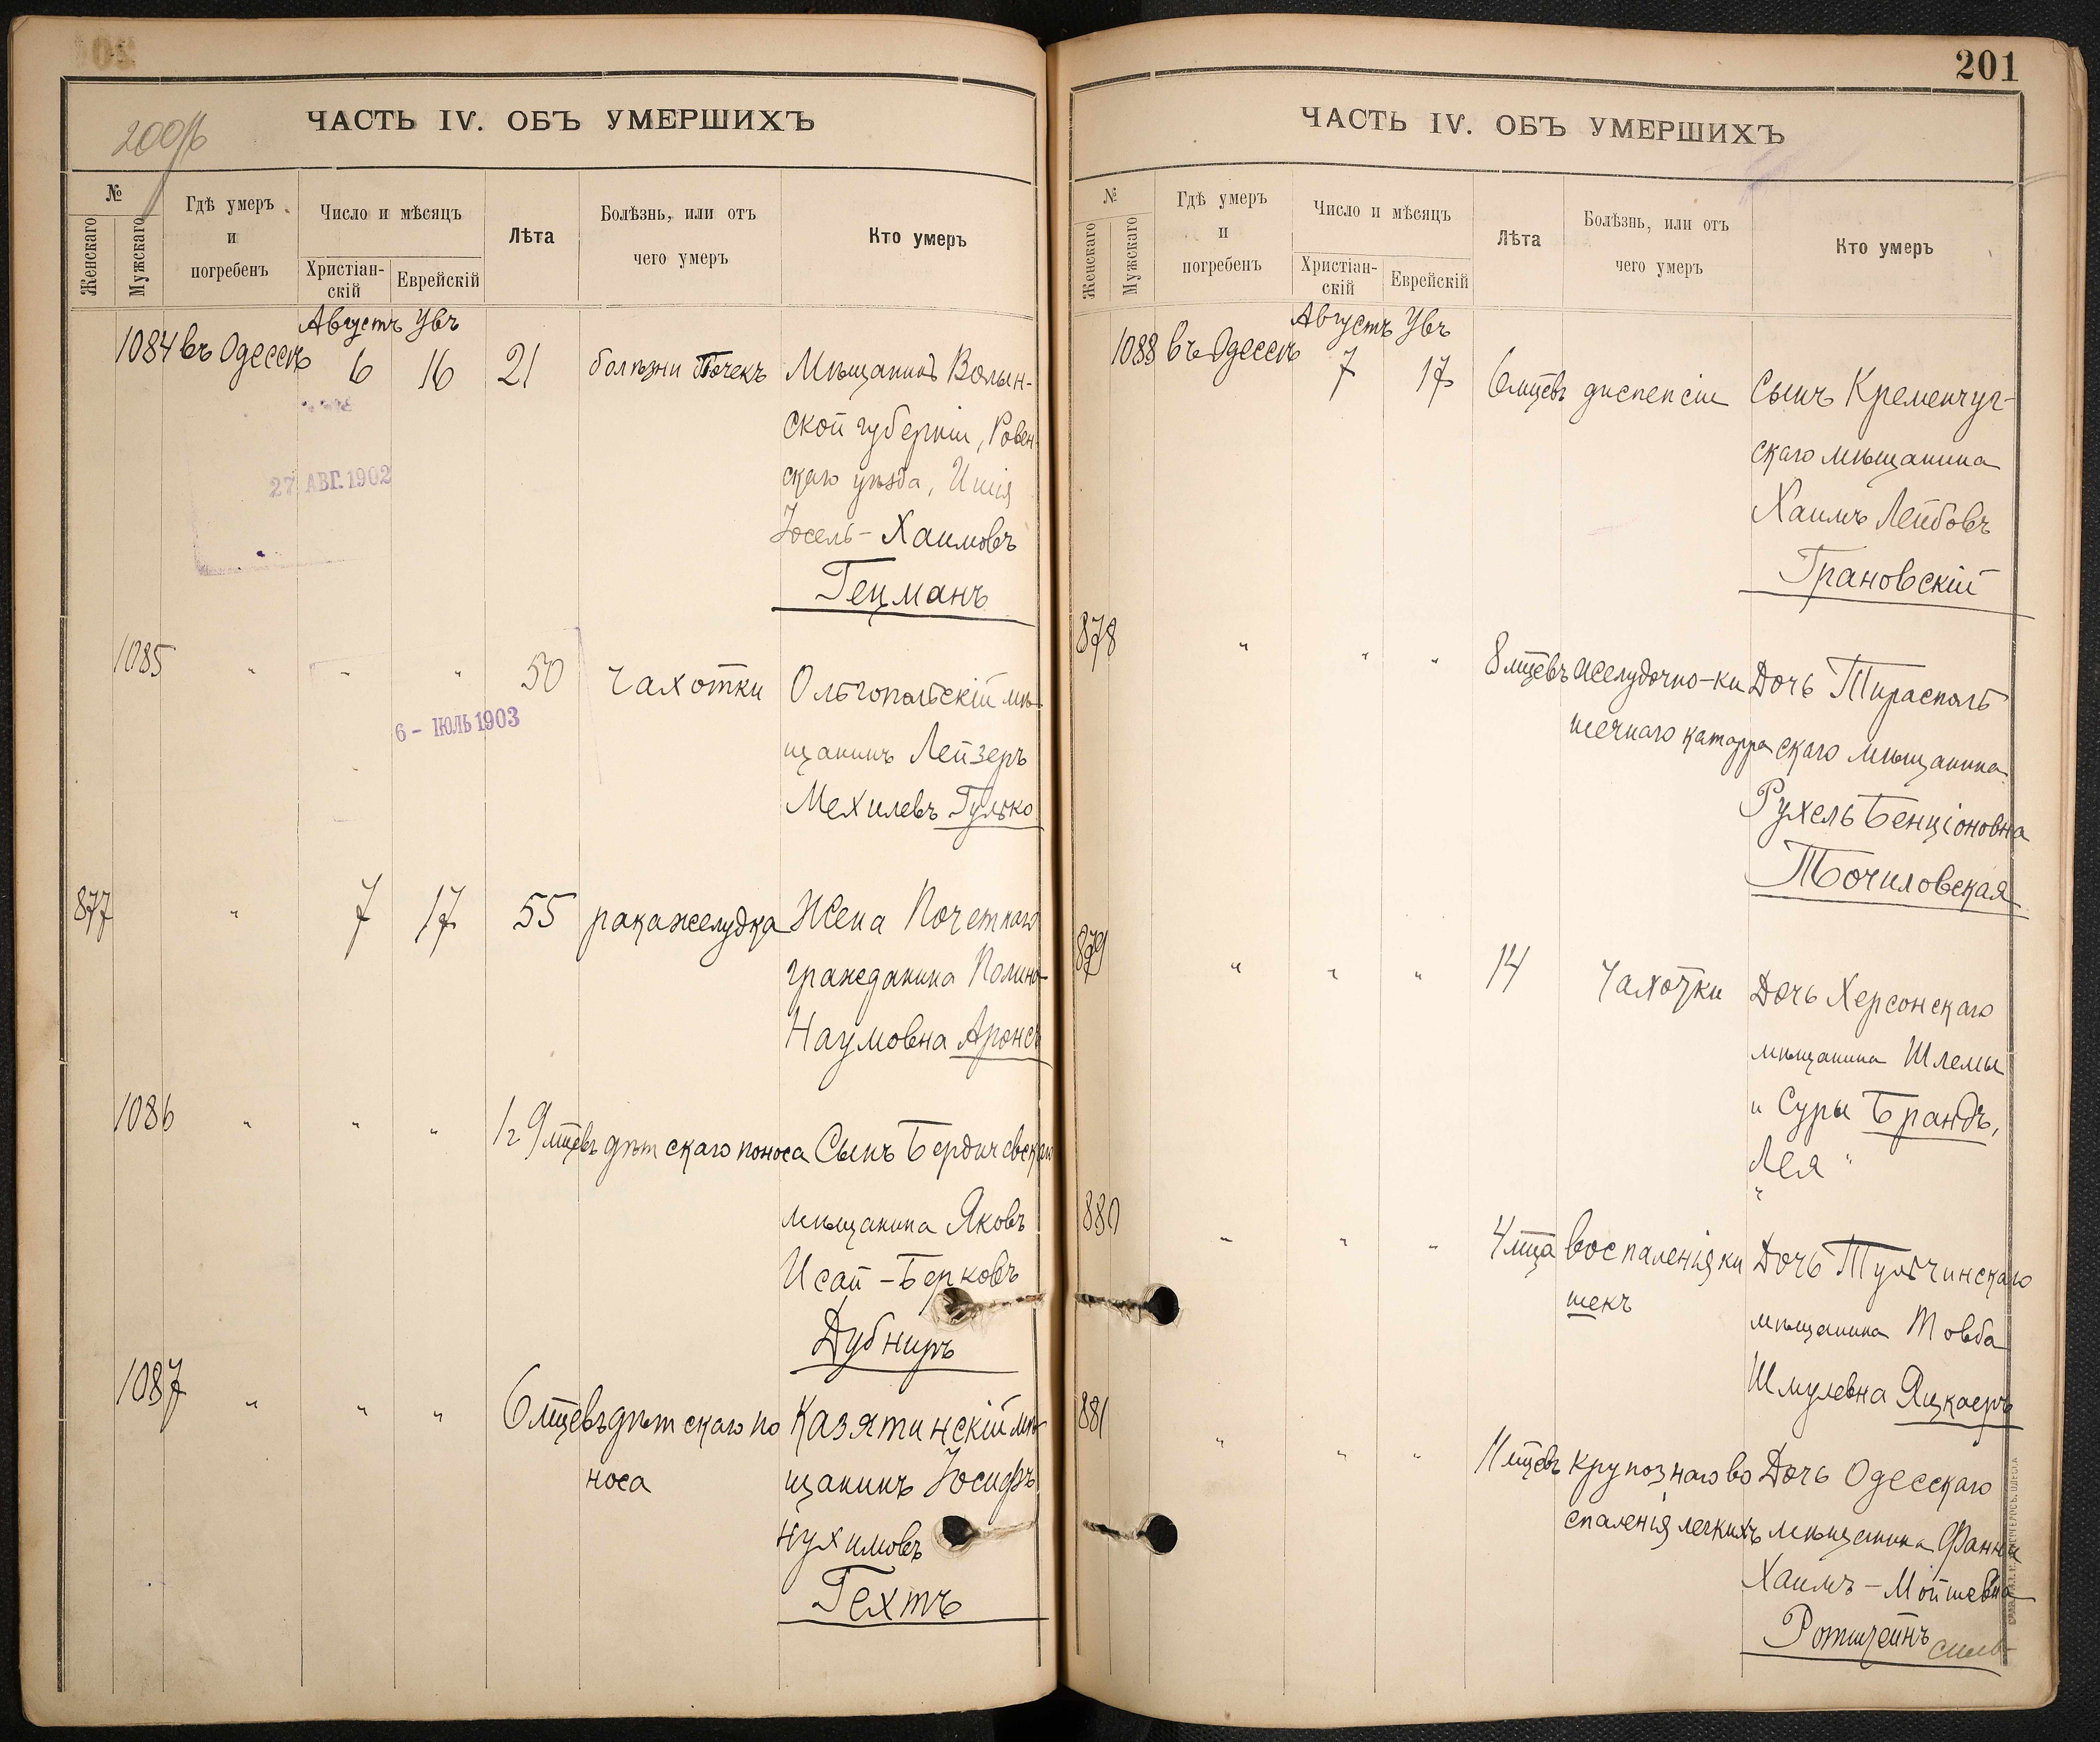 200об
ЧАСТЬ IV. ОБЪ УМЕРШИХЪ
№
Женскаго
Мужскаго
Гдѣ умеръ
и
погребенъ
Число и мѣсяцъ
Христіан-
скій
Еврейскій
Лѣта
Болѣзнь, или отъ
чего умеръ
Кто умеръ
Августъ Увъ
1084 въ Одессѣ 6 16 21 болѣзни Почекъ Мѣщанинъ Волын-
ской губерніи, Ровен-
скаго уѣзда,
27 АВГ. 1902
Іосель-Хаимовъ
Гецманъ
1085 " " " 50 чахотки Ольгопольскій мѣ-
щанинъ Лейзеръ
6 - ІЮЛЬ 1903
Мехилевъ Гулько
877 " 7 17 55 рака желудка Жена Почетнаго
гражданина Полина
Наумовна Аронсъ
1086 " " " 1 г 9 мцевъ дѣтскаго поноса Сынъ Бердичевскаго
мѣщанина Яковъ
Исай-Берковъ
Дубниръ
1087 " " " 6 мцевъ дѣтскаго по Казятинскій мѣ-
носа щанинъ Іосифъ
Нухимовъ
Гехтъ
201
ЧАСТЬ IV. ОБЪ УМЕРШИХЪ
№
Женскаго
Мужскаго
Гдѣ умеръ
и
погребенъ
Число и мѣсяцъ
Христіан-
скій
Еврейскій
Лѣта
Болѣзнь, или отъ
чего умеръ
Кто умеръ
Августъ Увъ
1088 въ Одессѣ 7 17 6 мцевъ диспепсіи Сынъ Кременчуг-
скаго мѣщанина
Хаимъ Лейбовъ
Грановскій
878 " " " 8 мцевъ желудочно-ки Дочь Тирасполь
шечнаго катарра скаго мѣщанина
Рухель Бенціоновна
Точиловская
879 " " " 14 Чахотки Дочь Херсонскаго
мѣщанина Шлемы
и Суры Брандъ,
"Лея"
880 " " " 4 мца воспаленія ки Дочь Тульчинскаго
шекъ мѣщанина Товба
Шмулевна Яцкаеръ
881 " " " 11 мцевъ крупознаго во Дочь Одесскаго
спаленія легкихъ мѣщанина Фанни
Хаимъ-Мойшевна
Ротштейнъ